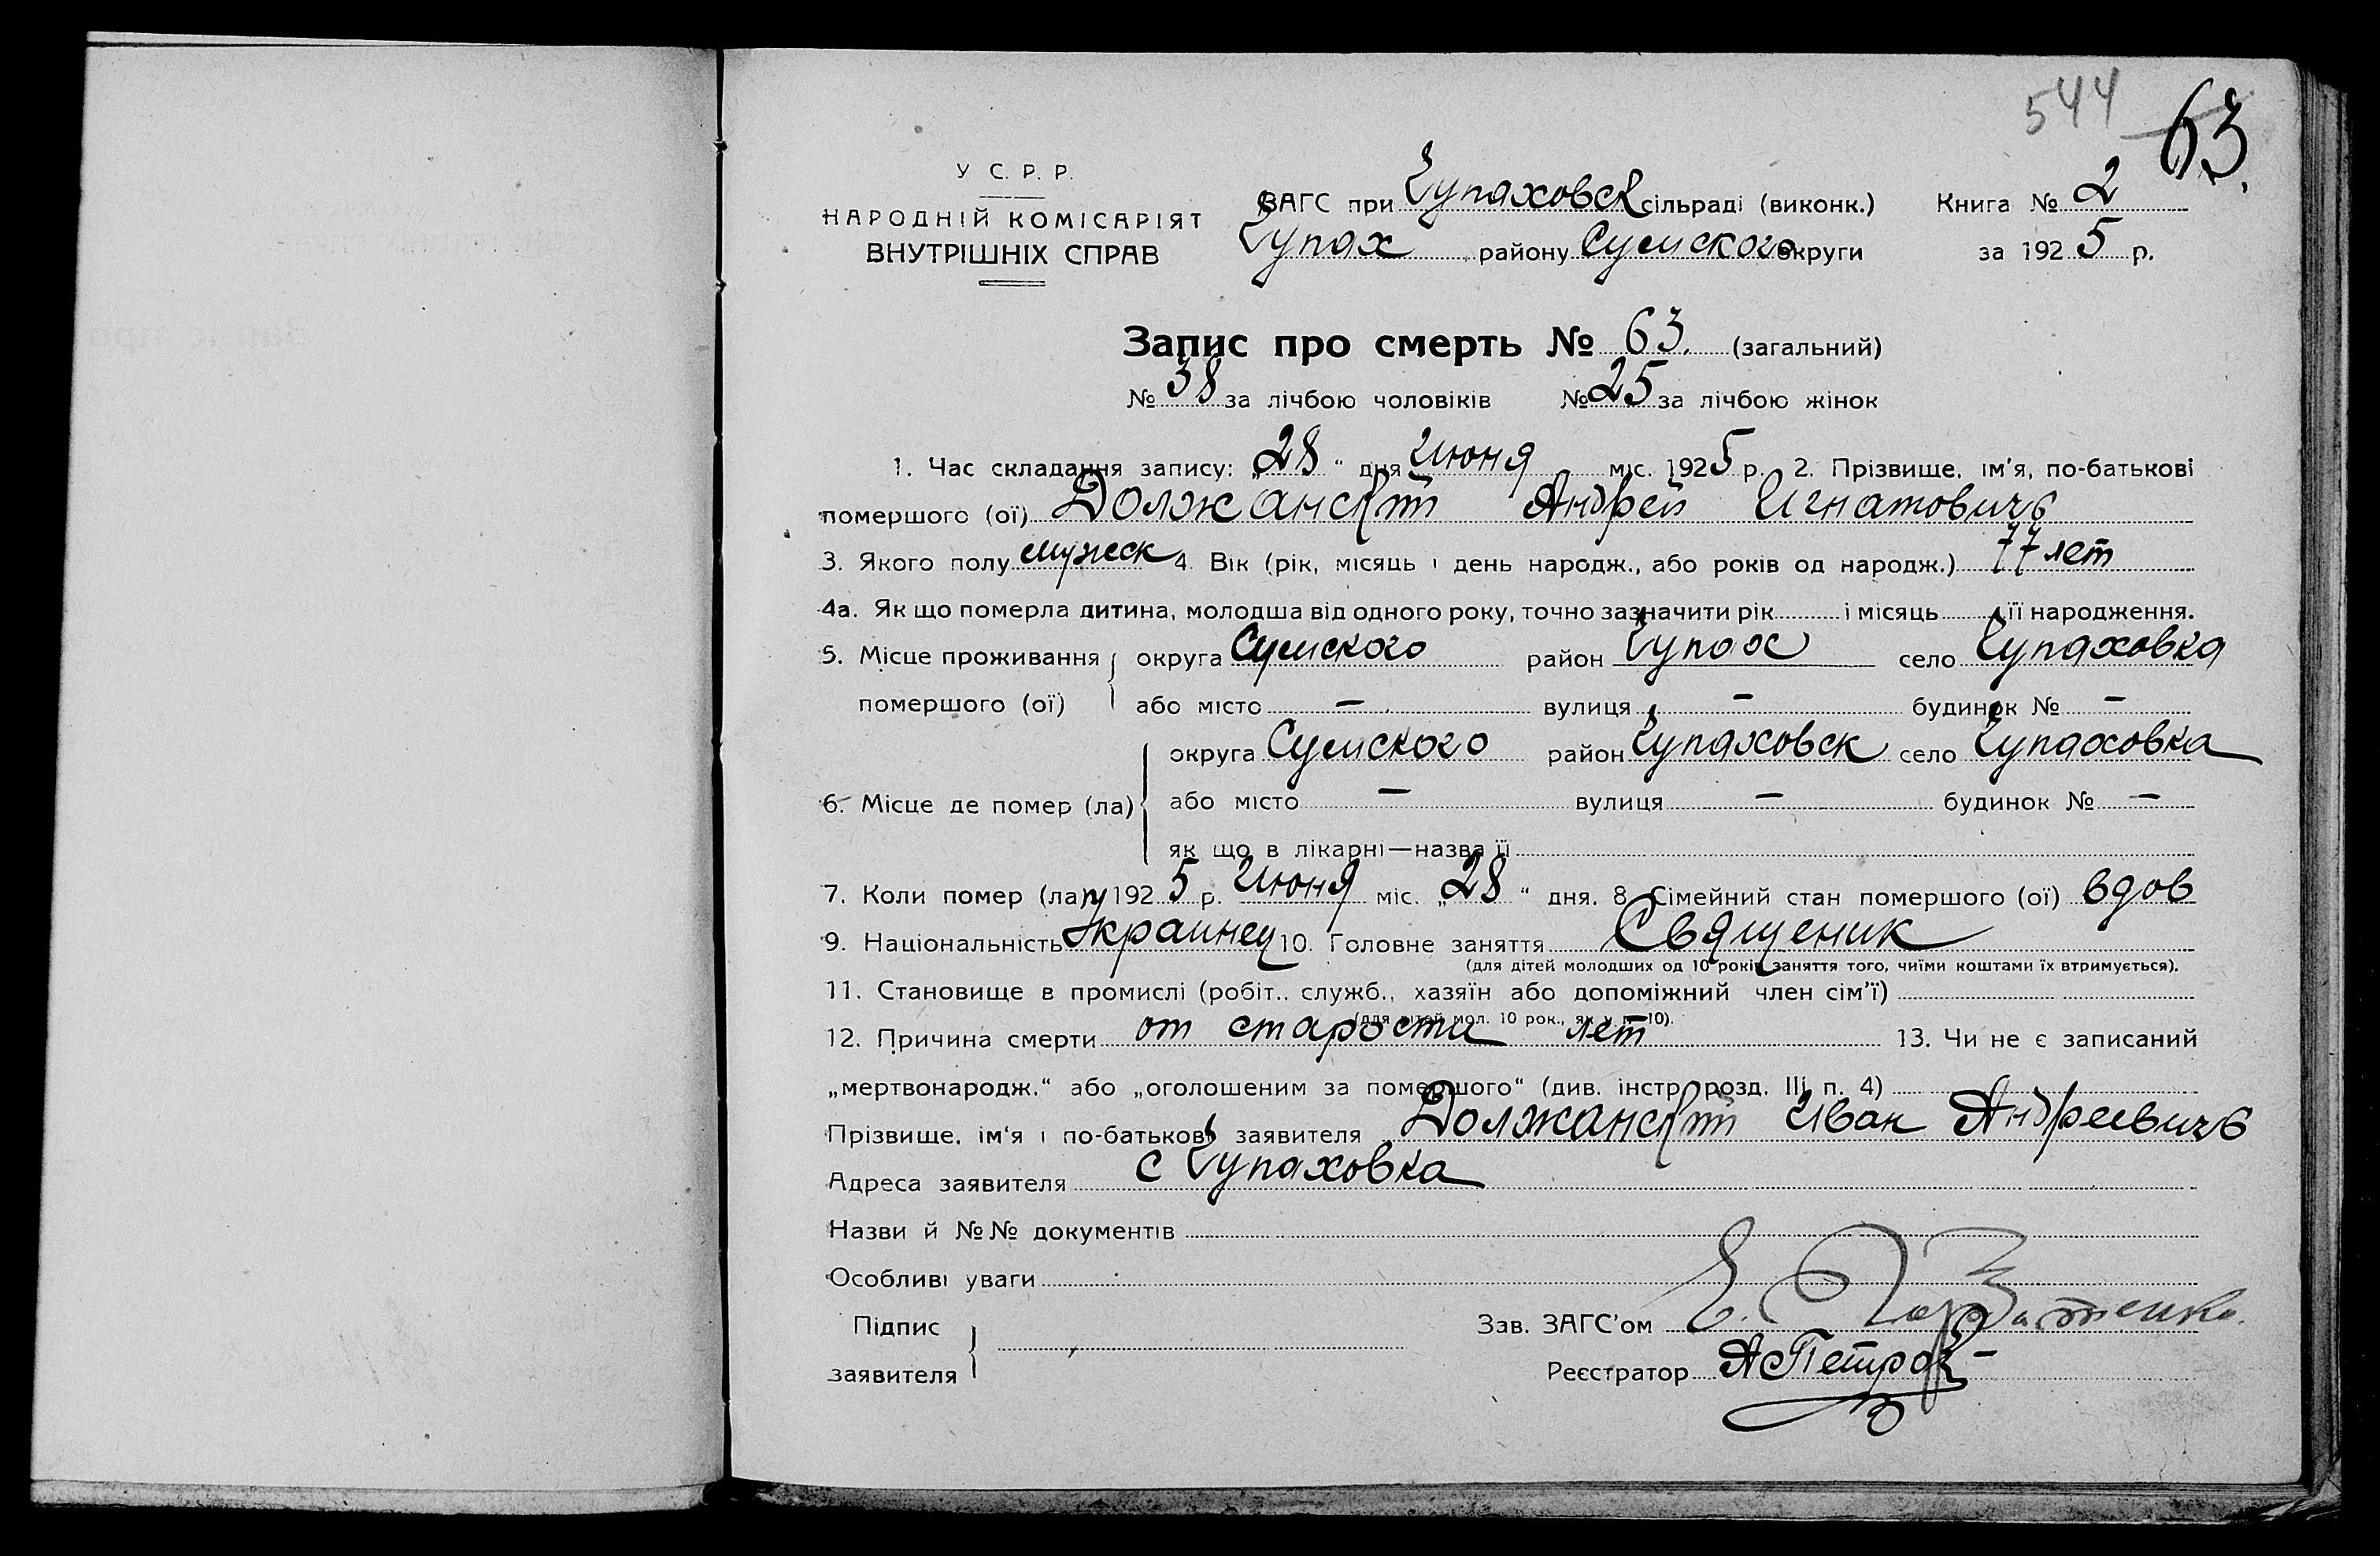 544 63.
У С. Р. Р.
НАРОДНІЙ КОМІСАРІЯТ
ВНУТРІШНІХ СПРАВ
ЗАГС при Чупаховск сільраді (виконк.) Книга № 2
Чупах району Сумского округи за 1925 р.
Запис про смерть № 63. (загальний)
№ 38 за лічбою чоловіків № 25 за лічбою жінок
1. Час складання запису: „28“ дня Июня міс. 1925 р. 2. Прізвище, ім'я, по-батькові
помершого (ої) Должанский Андрей Игнатовичъ
3. Якого полу мужск 4. Вік (рік, місяць і день народж., або років од народж.) 77 лет
4а. Як що померла дитина, молодша від одного року, точно зазначити рік і місяць її народження.
5. Місце проживання округа Сумского район Чупах село Чупаховка
помершого (ої) або місто — вулиця — будинок № —
округа Сумского район Чупаховск село Чупаховка
6. Місце де помер (ла) або місто — вулиця — будинок № —
як що в лікарні—назва її
7. Коли помер (ла) у 1925 р. Июня міс. „28“ дня. 8. Сімейний стан помершого (ої) вдов
9. Національність Украинец 10. Головне заняття Священик
(для дітей молодших од 10 років заняття того, чиїми коштами їх втримується).
11. Становище в промислі (робіт., служб., хазяїн або допоміжний член сім'ї)
(для дітей мол. 10 рок., як у п. 10).
12. Причина смерти от старости лет 13. Чи не є записаний
„мертвонародж.“ або „оголошеним за помершого“ (див. інстр. розд. III п. 4)
Прізвище, ім'я і по-батькові заявителя Должанский Иван Андреевичъ
Адреса заявителя с Чупаховка
Назви й №№ документів
Особливі уваги
Підпис
заявителя
Зав. ЗАГС'ом
Реєстратор АПетров